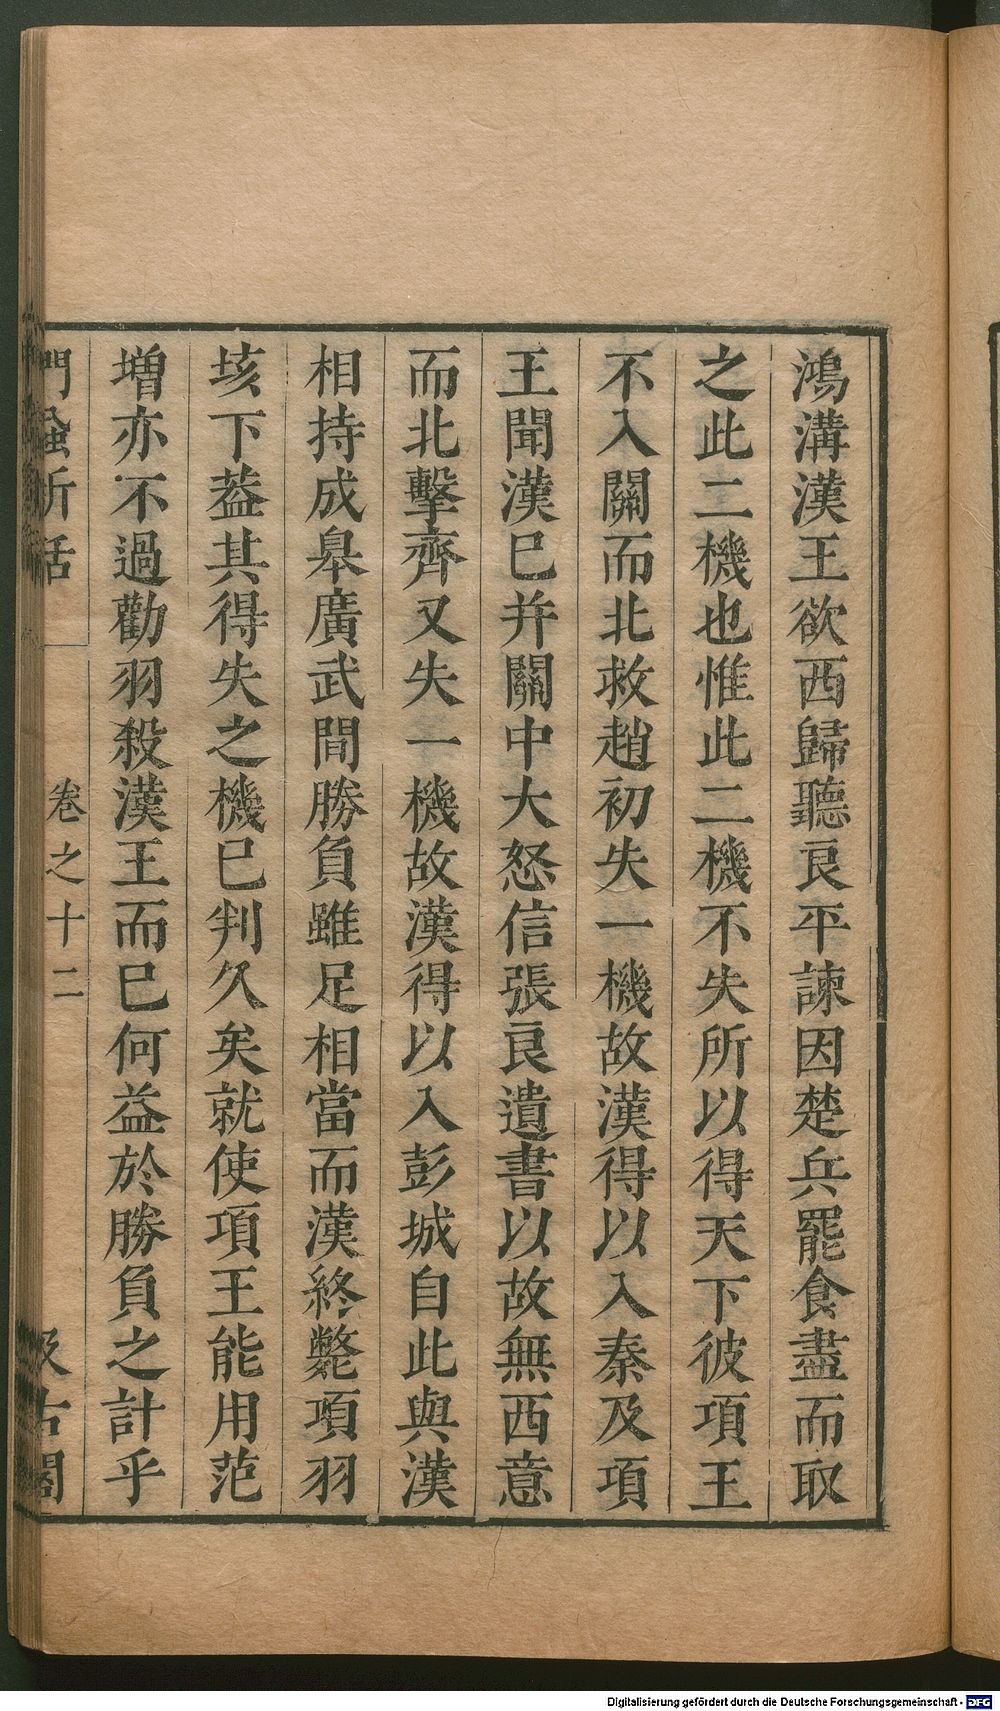 鴻溝漢王欲西歸聽良平諫因楚兵罷食盡而取
之此二機也惟此二機不失所以得天下彼項王
不入關而北救趙初失一機故漢得以入秦及項
王聞漢巳并關中大怒信張良遺書以故無西意
而北擊齊又失一機故漢得以入彭城自此與漢
相持成皋廣武間勝負雖足相當而漢終斃項羽
垓下葢其得失之機巳判久矣就使項王能用范
增亦不過勸羽殺漢王而巳何益於勝負之計乎
門蝨新話
卷之十二
汲古閣
Digitalisierung gefördert durch die Deutsche Forschungsgemeinschaft - DFG